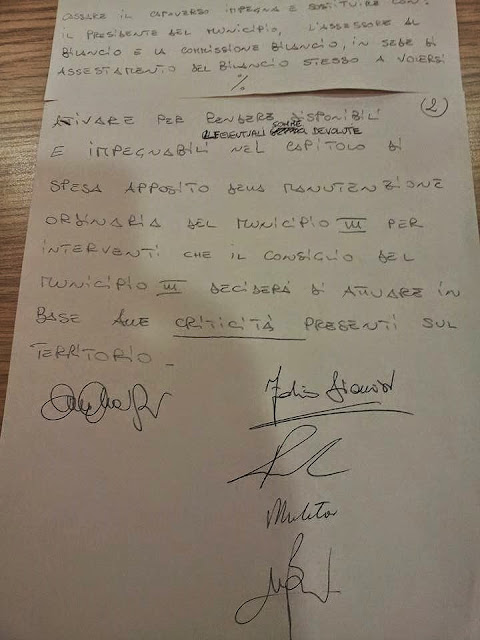 CASSARE IL CAPOVERSO IMPEGNA E SOSTITUIRE CON:
IL PRESIDENTE DEL MUNICIPIO, L'ASSESSORE AL
BILANCIO E LA COMMISSIONE BILANCIO, IN SEDE DI
ASSESTAMENTO DEL BILANCIO STESSO A VOLERSI
%
(2)
ATIVARE PER RENDERE DISPONIBILI
LE EVENTUALI SOMME DEVOLUTE
E IMPEGNABILI NEL CAPITOLO DI
SPESA APPOSITO DELLA MANUTENZIONE
ORDINARIA DEL MUNICIPIO III PER
INTERVENTI CHE IL CONSIGLIO DEL
MUNICIPIO III DECIDERÀ DI ATTUARE IN
BASE ALLE CRITICITÀ PRESENTI SUL
TERRITORIO _